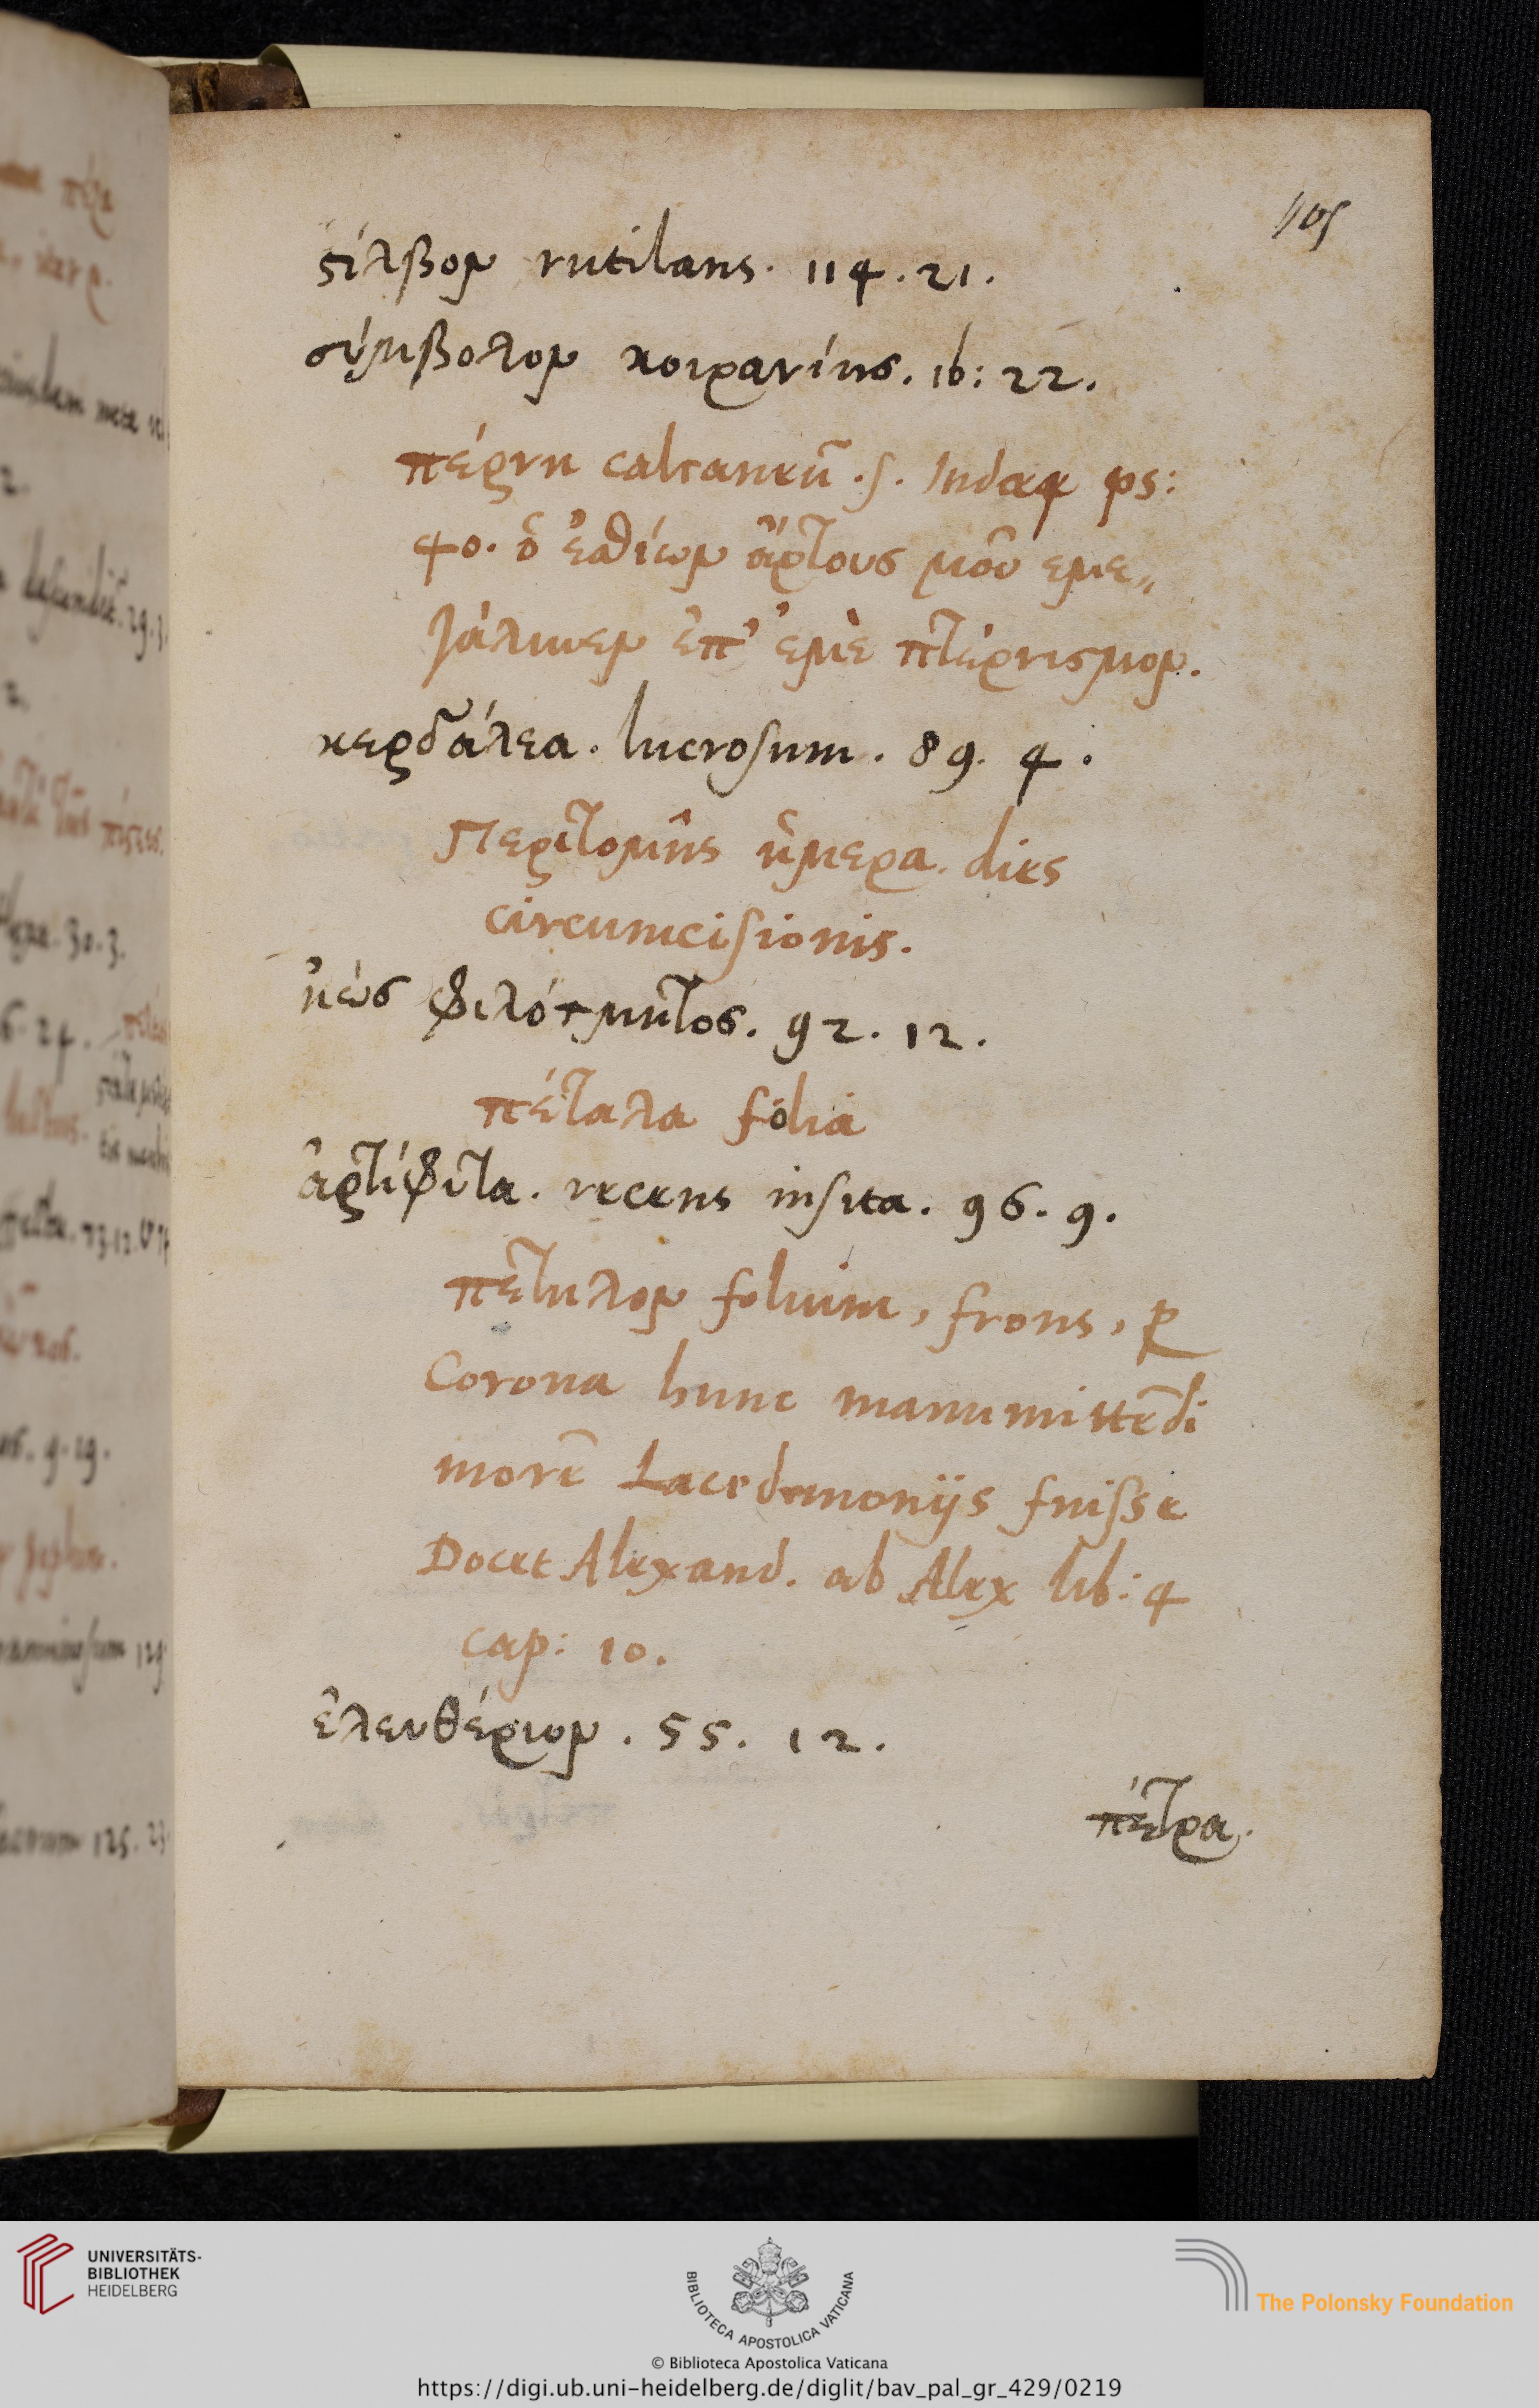 105
ϛίλβον rutilans. 114. 21.
σύμβολον κοιρανίης. ib: 22.
πέρνη calcaneū. s. Judae ps:
40. ὁ ἐσθίων ἄρτους μοῦ εμε„
γάλυνεν ἐπ' ἐμὲ πτέρνισμον.
κερδάλεα. lucrosum. 89. 4.
Περιτομῆς ἥμερα. dies
circumcisionis.
ἠὼς φιλότμητος. 92. 12.
πέταλα folia
ἀρτίφιτα. recens insita. 96. 9.
πέτηλον folium, frons,
Corona hunc manumittēdi
morē Lacedemonijs fuisse
Docet Alexand. ab Alex lib: 4
cap: 10.
ἐλευθέριον. 55. 12.
πέτρα.
UNIVERSITÄTS-
BIBLIOTHEK
HEIDELBERG
BIBLIOTECA APOSTOLICA VATICANA
The Polonsky Foundation
© Biblioteca Apostolica Vaticana
https://digi.ub.uni-heidelberg.de/diglit/bav_pal_gr_429/0219